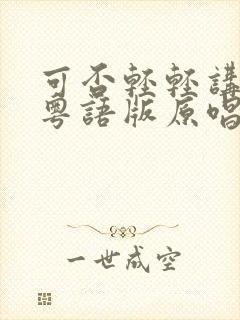 可否輕輕講
粵語版原唱
一世成空